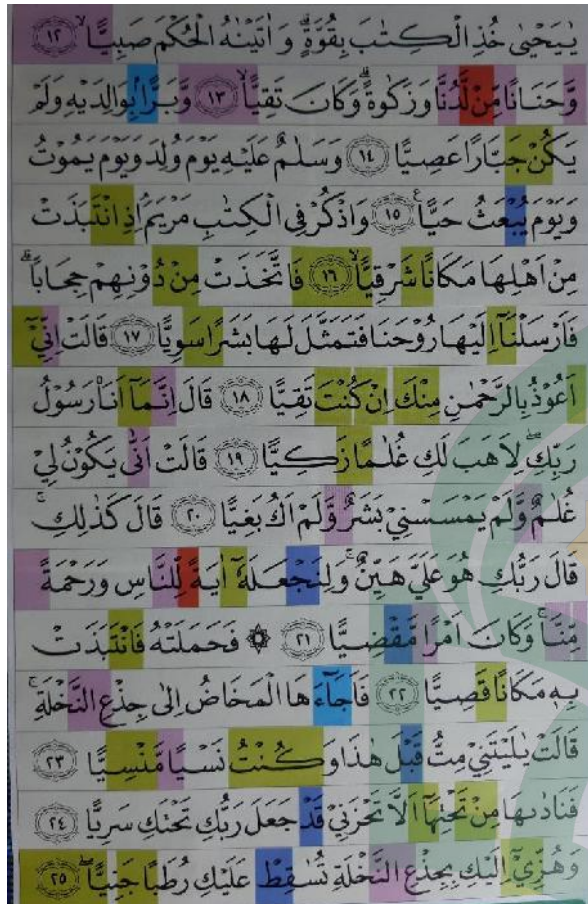 يٰيَحْيٰى خُذِ الْكِتٰبَ بِقُوَّةٍ ۗ وَاٰتَيْنٰهُ الْحُكْمَ صَبِيًّاۙ ١٢
وَّحَنَانًا مِّنْ لَّدُنَّا وَزَكٰوةً ۗ وَكَانَ تَقِيًّاۙ ١٣ وَّبَرًّاۢ بِوَالِدَيْهِ وَلَمْ
يَكُنْ جَبَّارًا عَصِيًّا ١٤ وَسَلٰمٌ عَلَيْهِ يَوْمَ وُلِدَ وَيَوْمَ يَمُوْتُ
وَيَوْمَ يُبْعَثُ حَيًّا ࣖ ١٥ وَاذْكُرْ فِى الْكِتٰبِ مَرْيَمَۘ اِذِ انْتَبَذَتْ
مِنْ اَهْلِهَا مَكَانًا شَرْقِيًّاۙ ١٦ فَاتَّخَذَتْ مِنْ دُوْنِهِمْ حِجَابًاۗ
فَاَرْسَلْنَآ اِلَيْهَا رُوْحَنَا فَتَمَثَّلَ لَهَا بَشَرًا سَوِيًّا ١٧ قَالَتْ اِنِّيْٓ
اَعُوْذُ بِالرَّحْمٰنِ مِنْكَ اِنْ كُنْتَ تَقِيًّا ١٨ قَالَ اِنَّمَآ اَنَا۠ رَسُوْلُ
رَبِّكِۖ لِاَهَبَ لَكِ غُلٰمًا زَكِيًّا ١٩ قَالَتْ اَنّٰى يَكُوْنُ لِيْ
غُلٰمٌ وَّلَمْ يَمْسَسْنِيْ بَشَرٌ وَّلَمْ اَكُ بَغِيًّا ٢٠ قَالَ كَذٰلِكِۚ
قَالَ رَبُّكِ هُوَ عَلَيَّ هَيِّنٌۚ وَلِنَجْعَلَهٗٓ اٰيَةً لِّلنَّاسِ وَرَحْمَةً
مِّنَّاۚ وَكَانَ اَمْرًا مَّقْضِيًّا ٢١ ۞ فَحَمَلَتْهُ فَانْتَبَذَتْ
بِهٖ مَكَانًا قَصِيًّا ٢٢ فَاَجَاۤءَهَا الْمَخَاضُ اِلٰى جِذْعِ النَّخْلَةِۚ
قَالَتْ يٰلَيْتَنِيْ مِتُّ قَبْلَ هٰذَا وَكُنْتُ نَسْيًا مَّنْسِيًّا ٢٣
فَنَادٰىهَا مِنْ تَحْتِهَآ اَلَّا تَحْزَنِيْ قَدْ جَعَلَ رَبُّكِ تَحْتَكِ سَرِيًّا ٢٤
وَهُزِّيْٓ اِلَيْكِ بِجِذْعِ النَّخْلَةِ تُسٰقِطْ عَلَيْكِ رُطَبًا جَنِيًّاۖ ٢٥